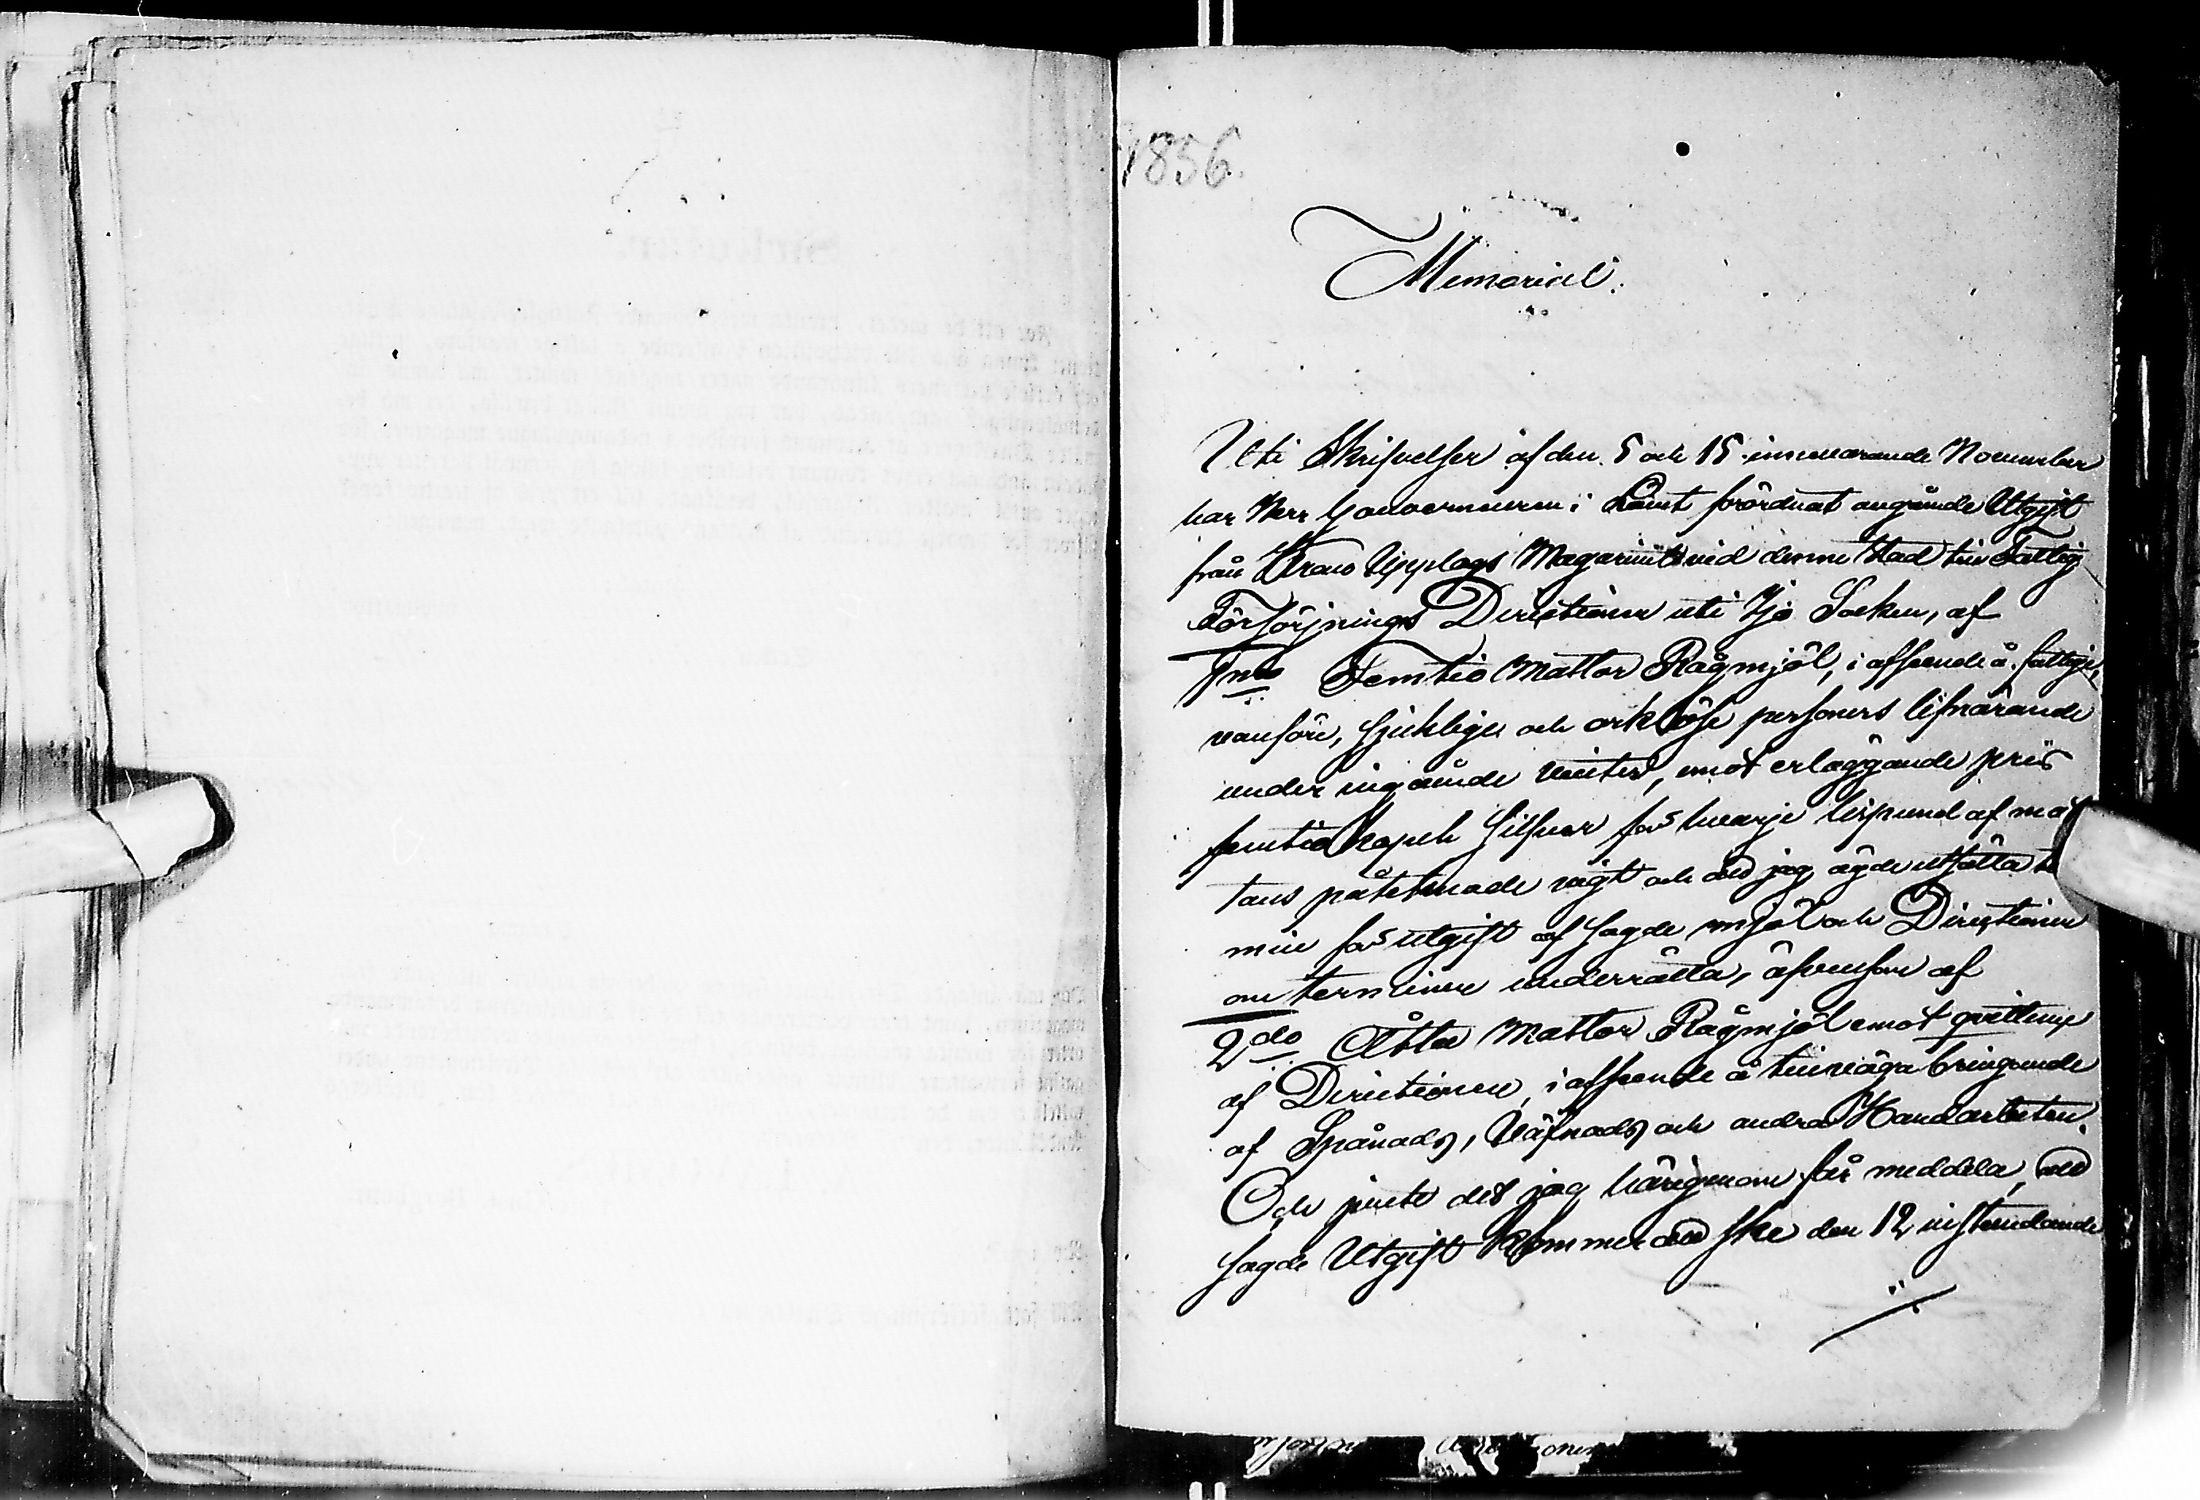 1856.
Memorial.
Uti Skrifvelser af den 5 och 15 innevarande November
har Herr Gouverneuren i Länet förordnat angående Utgift
från Krono Upplags Magasinet vid denne Stad till Fattig
Försörjnings Directionen uti Ijo Socken, af
1mo Femtio Mattor Rågmjöl, i afseende å fattige,
vanföre, sjuklige och orklöse personers lifnärande
under ingående vinter, emot erläggande pris
femtio kopek Silfver för hvarje lispund af mat
tans påtecknade vigt och att jag ägde utsätta ter
min för utgift af sagde mjöl och Directionen
om terminen underrätta, äfvensom af
2do Åtta Mattor Rågmjöl emot qvittens
af Directionen, i afseende å tillvägabringande
af Spånads, Väfnads och andra Handarbeten.
Och jemte det jag härigenom får meddela, att
sagde Utgift kommer att ske den 12 nästkundande